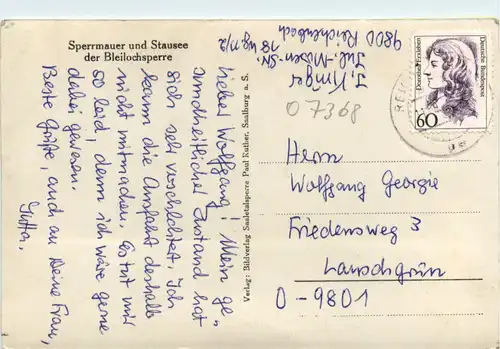 Sperrmauer und Stausee
der Bleilochsperre
Lieber Wolfgang! Mein ge-
sundheitlicher Zustand hat
sich sehr verschlechtert. Ich
kann die Anfahrt deshalb
nicht mitmachen. Es tut mir
so leid, denn ich wäre gerne
dabei gewesen.
Beste Grüße, auch an Deine Frau,
Jutta.
Verlag: Bildverlag Saaletalsperre Paul Kuther, Saalburg a. S.
J.
Jul.-Mosen-Str.
9800 Reichenbach
07368
Deutsche Bundespost
Dorothea Erxleben
60
REI
Herrn
Wolfgang Georgie
Friedensweg 3
Lauschgrün
O-9801